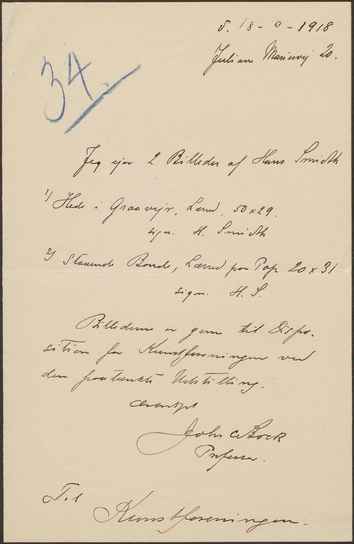 34.
d. 18 - 9 - 1918
Juliane Mariesvej 20.
Jeg ejer 2 Billeder af Hans Smidth
1) Hede i Graavejr, Lærred, 50 x 29.
sign. H. Smidth
2) Staaende Bonde, Lærred paa Pap 20 x 31
sign. H. S.
Billederne er gerne til Dispo-
sition for Kunstforeningen ved
den paatænkte Udstilling.
ærbødigst
John
Professor.
Til
Kunstforeningen.